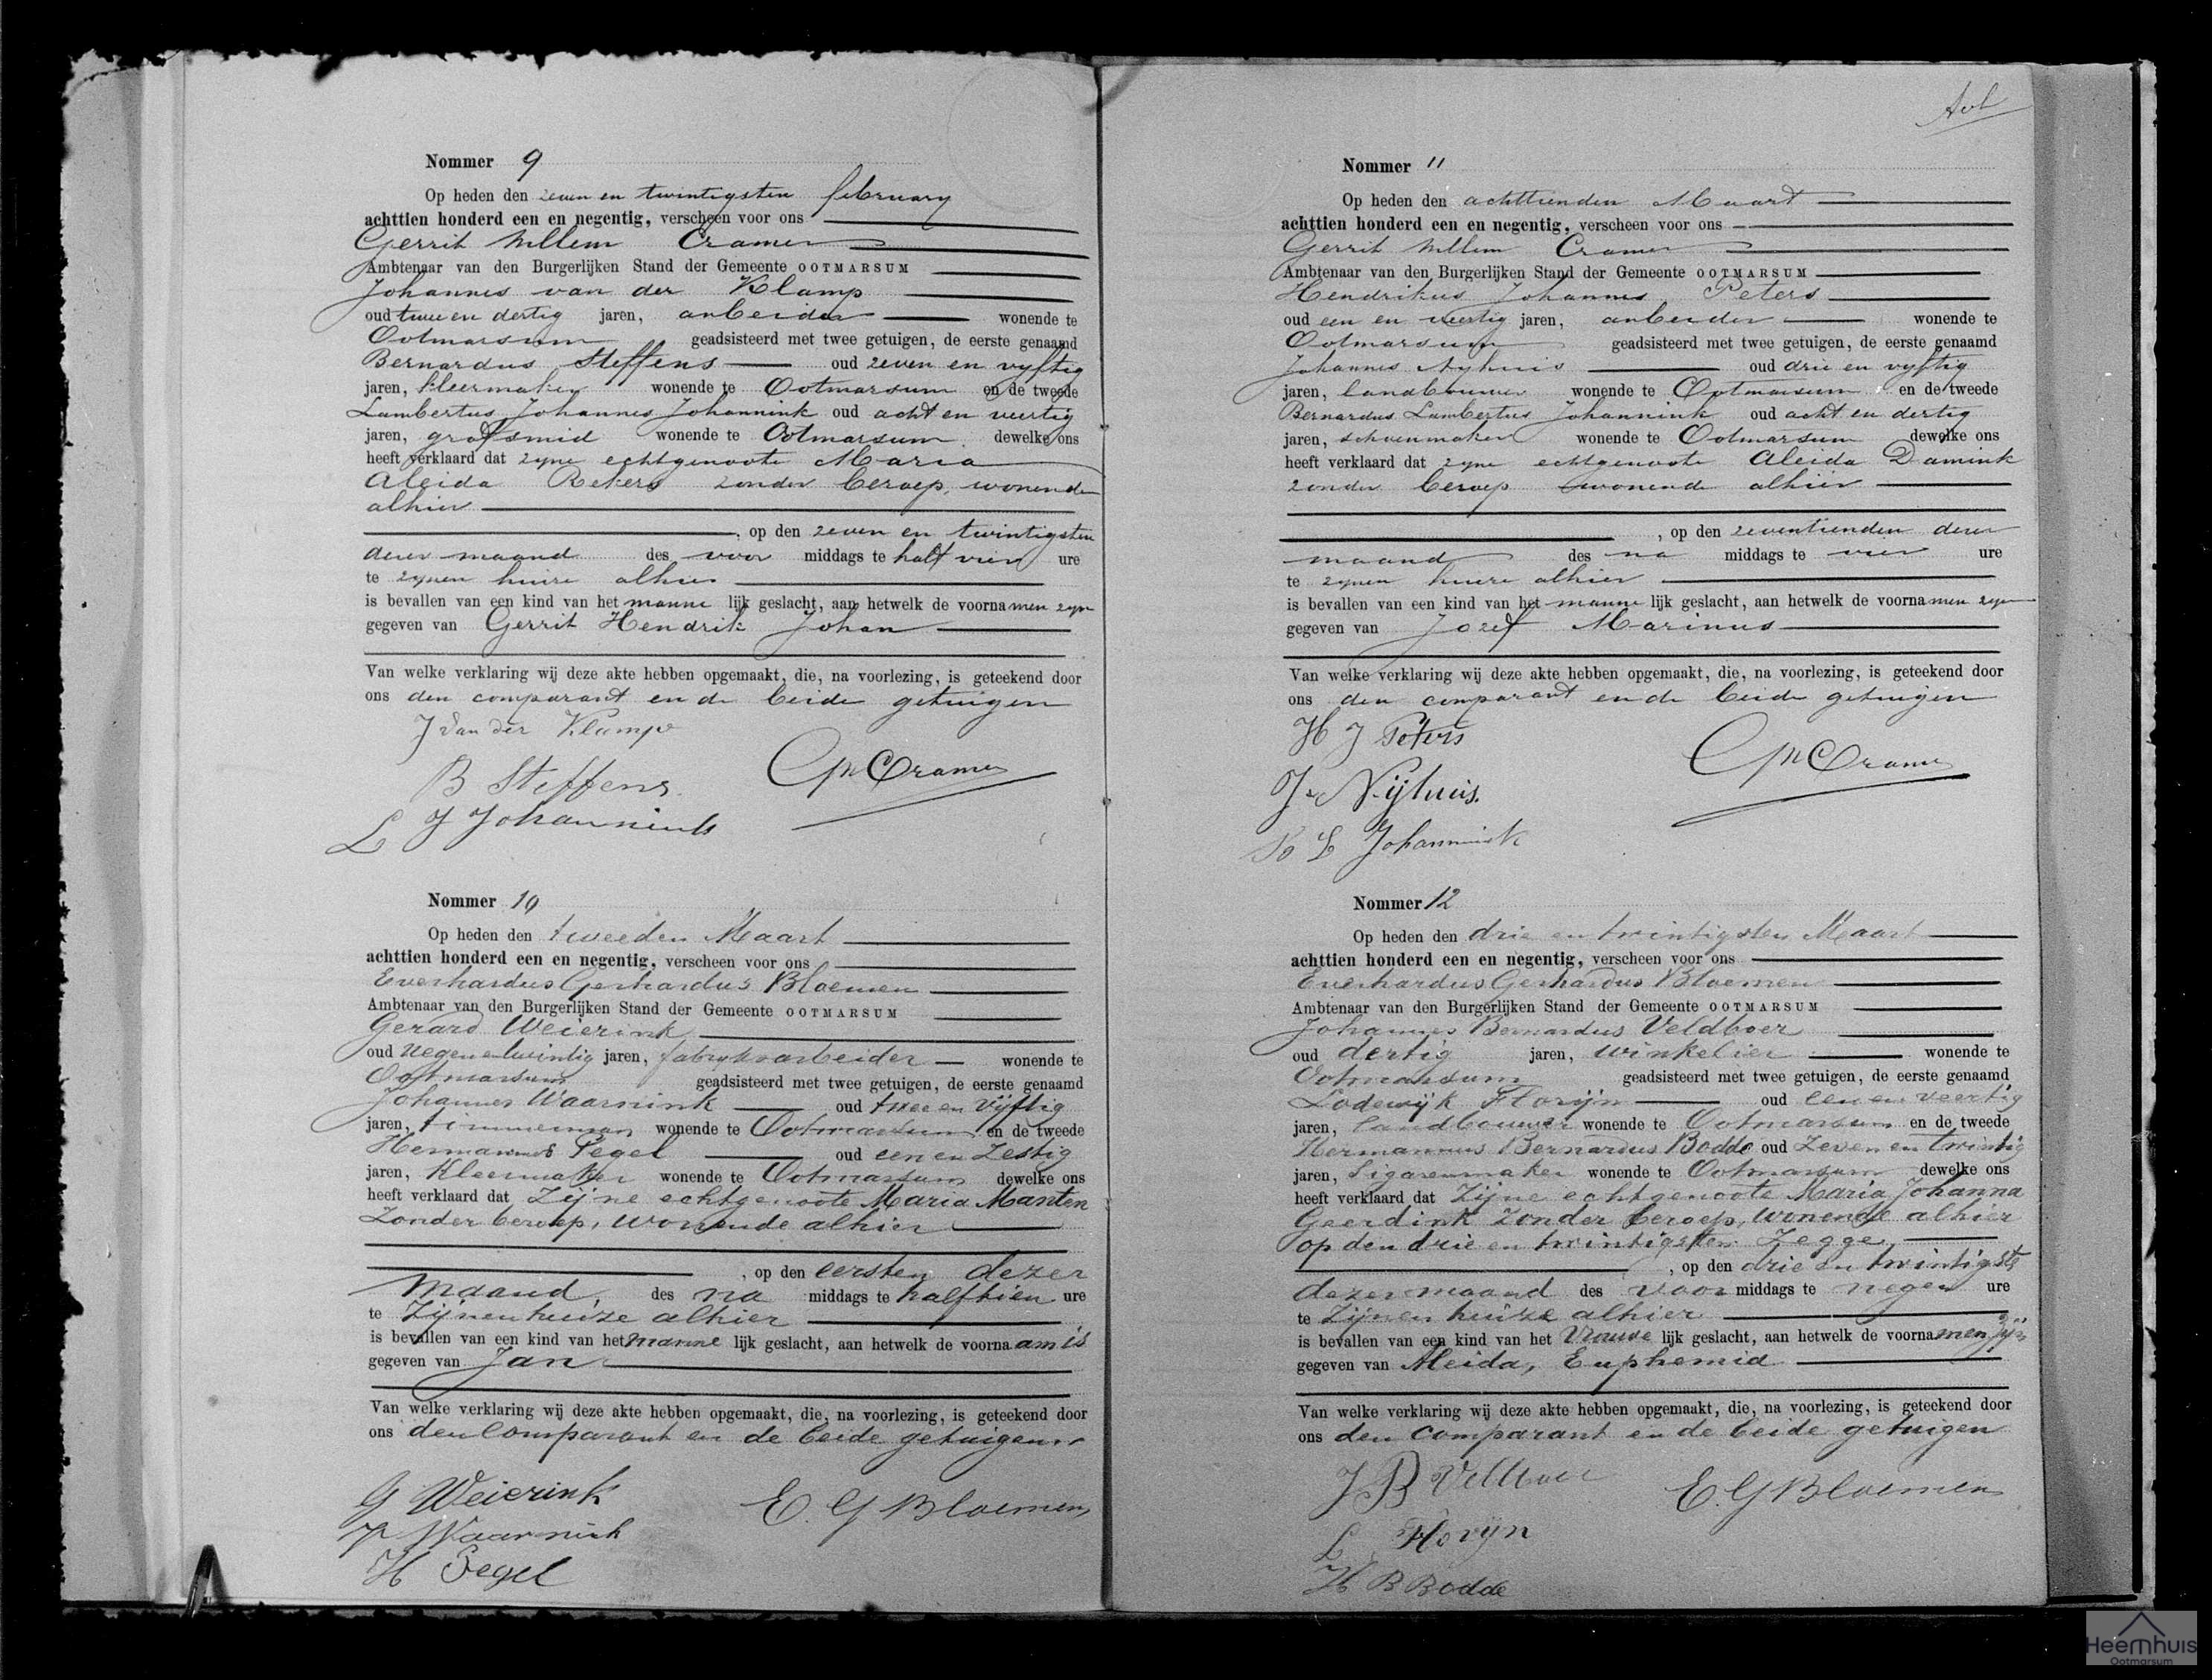 Nommer 9
Op heden den zeven en twintigsten february
achttien honderd een en negentig, verscheen voor ons
Gerrit Willem Cramer
Ambtenaar van den Burgerlijken Stand der Gemeente OOTMARSUM
Johannes van der Klamp
oud twee en dertig jaren, arbeider wonende te
Ootmarsum geadsisteerd met twee getuigen, de eerste genaamd
Bernardus Steffens oud zeven en vyftig
jaren, kleermaker wonende te Ootmarsum en de tweede
Lambertus Johannes Johannink oud acht en veertig
jaren, grofsmid wonende te Ootmarsum, dewelke ons
heeft verklaard dat zyne echtgenoote Maria
Aleida Rekers zonder beroep, wonende
alhier
, op den zeven en twintigsten
dezer maand des voor middags te half vier ure
te zynen huize alhier
is bevallen van een kind van het manne lijk geslacht, aan hetwelk de voornamen zyn
gegeven van Gerrit Hendrik Johan
Van welke verklaring wij deze akte hebben opgemaakt, die, na voorlezing, is geteekend door
ons den comparant en de beide getuigen
J van der Klamp
B Steffens
GW Cramer
L J Johannink
Nommer 10
Op heden den tweeden Maart
achttien honderd een en negentig, verscheen voor ons
Everhardus Gerhardus Bloemen
Ambtenaar van den Burgerlijken Stand der Gemeente OOTMARSUM
Gerard Weierink
oud negen en twintig jaren, fabrykarbeider wonende te
Ootmarsum geadsisteerd met twee getuigen, de eerste genaamd
Johannes Waarnink oud twee en vijftig
jaren, timmerman wonende te Ootmarsum en de tweede
Hermannus Pegel oud een en Zestig
jaren, Kleermaker wonende te Ootmarsum dewelke ons
heeft verklaard dat Zijne echtgenoote Maria Manten
Zonder beroep, wonende alhier
, op den eersten dezer
maand, des na middags te half tien ure
te Zijnen huize alhier
is bevallen van een kind van het manne lijk geslacht, aan hetwelk de voornaam is
gegeven van Jan
Van welke verklaring wij deze akte hebben opgemaakt, die, na voorlezing, is geteekend door
ons den Comparant en de beide getuigen
G Weierink
E. G Bloemen
Waarnink
H Pegel
Nommer 11
Op heden den achttienden Maart
achttien honderd een en negentig, verscheen voor ons
Gerrit Willem Cramer
Ambtenaar van den Burgerlijken Stand der Gemeente OOTMARSUM
Hendrikus Johannes Peters
oud een en veertig jaren, arbeider wonende te
Ootmarsum geadsisteerd met twee getuigen, de eerste genaamd
Johannes Nyhuis oud drie en vyftig
jaren, landbouwer wonende te Ootmarsum en de tweede
Bernardus Lambertus Johannink oud acht en dertig
jaren, schoenmaker wonende te Ootmarsum dewelke ons
heeft verklaard dat zyne echtgenoote Aleida Damink
zonder beroep wonende alhier
, op den zeventienden dezer
maand des na middags te vier ure
te zynen huize alhier
is bevallen van een kind van het manne lijk geslacht, aan hetwelk de voornamen zyn
gegeven van Jozef Marinus
Van welke verklaring wij deze akte hebben opgemaakt, die, na voorlezing, is geteekend door
ons den comparant en de beide getuigen
H J Peters
GW Cramer
J. Nijhuis.
B L Johannink
Nommer 12
Op heden den drie en twintigsten Maart
achttien honderd een en negentig, verscheen voor ons
Everhardus Gerhardus Bloemen
Ambtenaar van den Burgerlijken Stand der Gemeente OOTMARSUM
Johannes Bernardus Veldboer
oud dertig jaren, winkelier wonende te
Ootmarsum geadsisteerd met twee getuigen, de eerste genaamd
Lodewijk Florijn oud een en veertig
jaren, landbouwer wonende te Ootmarsum en de tweede
Hermannus Bernardus Bodde oud Zeven en twintig
jaren, Sigarenmaker wonende te Ootmarsum dewelke ons
heeft verklaard dat Zijne echtgenoote Maria Johanna
Geerdink Zonder beroep, wonende alhier
op den drie en twintigsten Zegge
, op den drie en twintigste
dezer maand des voor middags te negen ure
te Zijnen huize alhier
is bevallen van een kind van het Vrouwe lijk geslacht, aan hetwelk de voornamen Zijn
gegeven van Aleida, Euphemia
Van welke verklaring wij deze akte hebben opgemaakt, die, na voorlezing, is geteekend door
ons den Comparant en de beide getuigen
J B Veldboer
E. G Bloemen
L Florijn
H B Bodde
Heemhuis
Ootmarsum